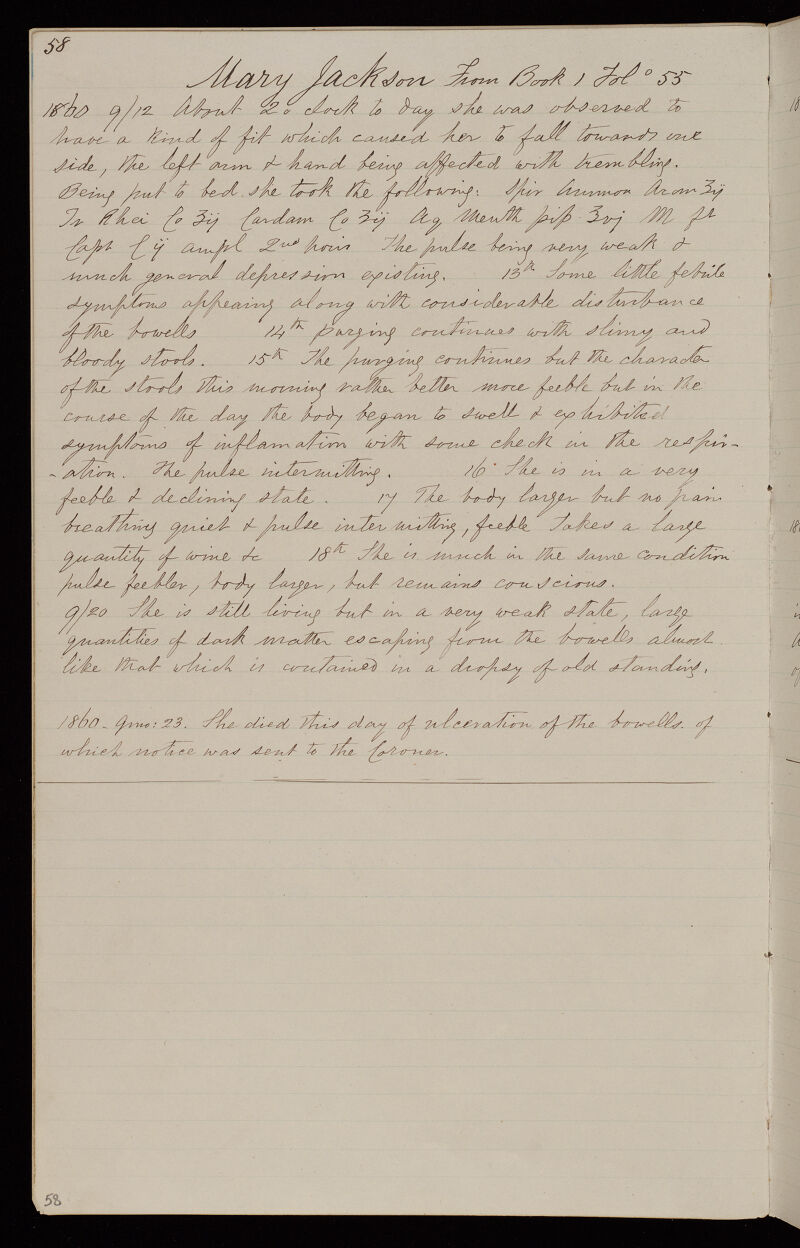 58
Mary Jackson From Book 1 Fol° 55
1860 9/12 About 2 o clock to day she was observed to
have a kind of fit which caused her to fall towards one
side, the left arm & hand being affected with trembling.
Being put to bed she took the following: Spir Ammon Arom ʒij
Tr Rhei Co ʒij Cardam Co ʒij Aq Menth pip ℥vj M ft
Capt C ij ampl 2nd hour The pulse being very weak &
much general depression existing. 13th Some little febrile
symptoms appearing along with considerable disturbance
of the bowells 14th purging continues with slimy and
bloody stools. 15th The purging continues but the character
of the stools this morning rather better more feeble but in the
course of the day the body began to swell & exhibited
symptoms of inflamation with some check in the respir-
-ation. The pulse intermitting. 16 She is in a very
feeble & declining state. 17 The body larger but no pain
breathing quiet & pulse intermitting, feeble Takes a large
quantity of wine &c 18th She is much in the same condition
pulse feebler, body larger, but remains conscious.
9/20 She is still living but in a very weak state, large
quantities of dark matter escaping from the bowells almost
like that which is contained in a dropsy of old standing.
1860 - 9mo: 23. She died this day of ulceration of the bowells. of
which notice was sent to the Coroner.
58